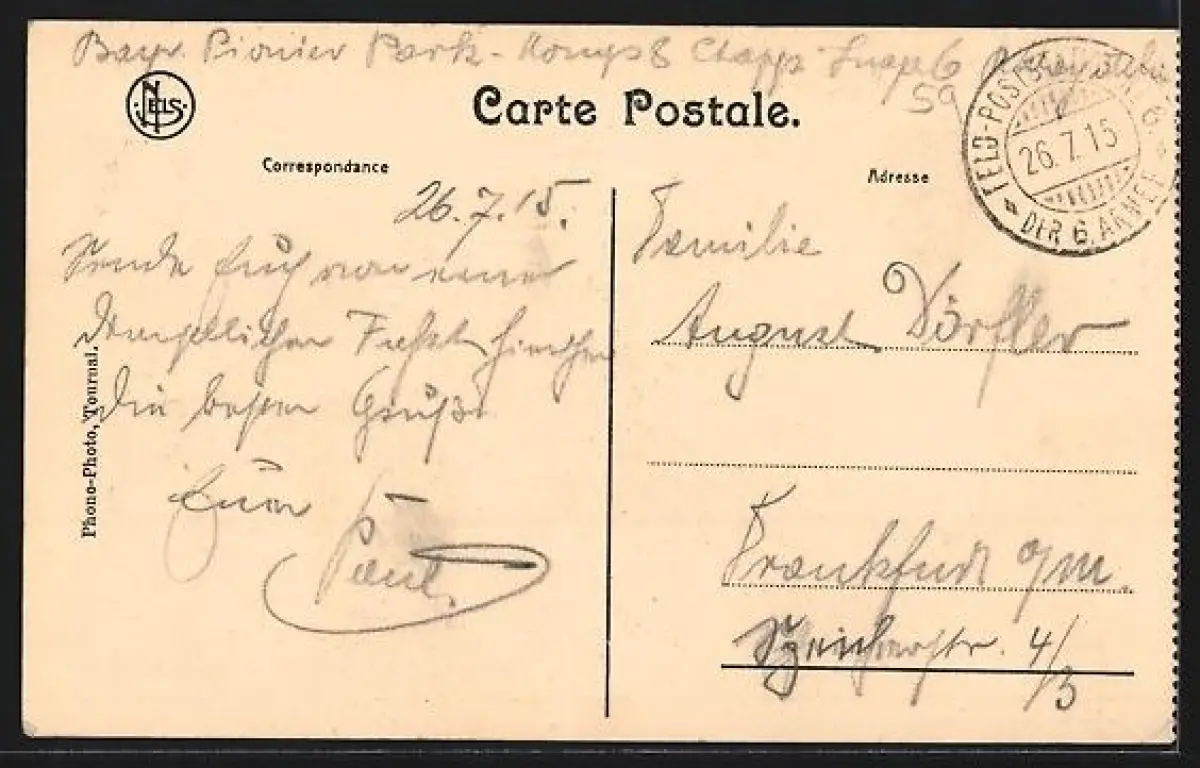 Bayr. Pionier Park-Komp 8 Etapp. 6
59
NELS
Carte Postale.
FELD-POSTSTATION 6.
26.7.15
DER 6. ARMEE
Correspondance
Adresse
26.7.15.
Sende Euch von einer
Fahrt hierher
die besten Grüße
Euer
Paul.
Phono-Photo, Tournai.
Familie
August Dörfler
Frankfurt a/M.
Speicherstr. 4/3